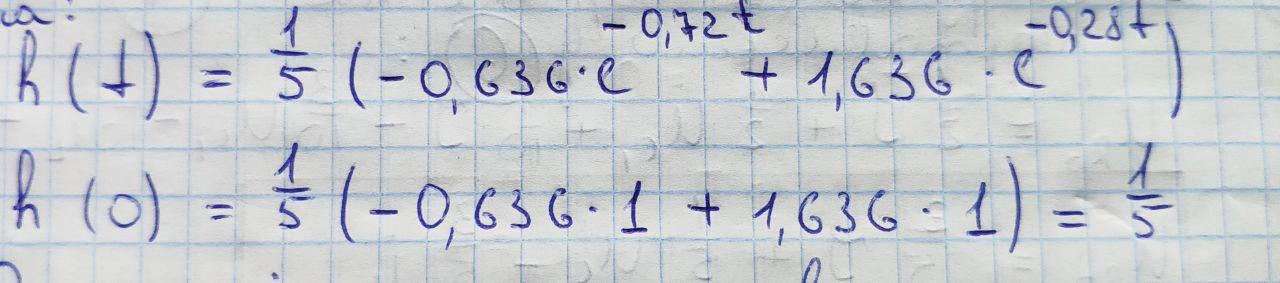 h(t) = 1/5 (-0,636·e^-0,72t + 1,636·e^-0,28t)
h(0) = 1/5 (-0,636·1 + 1,636·1) = 1/5